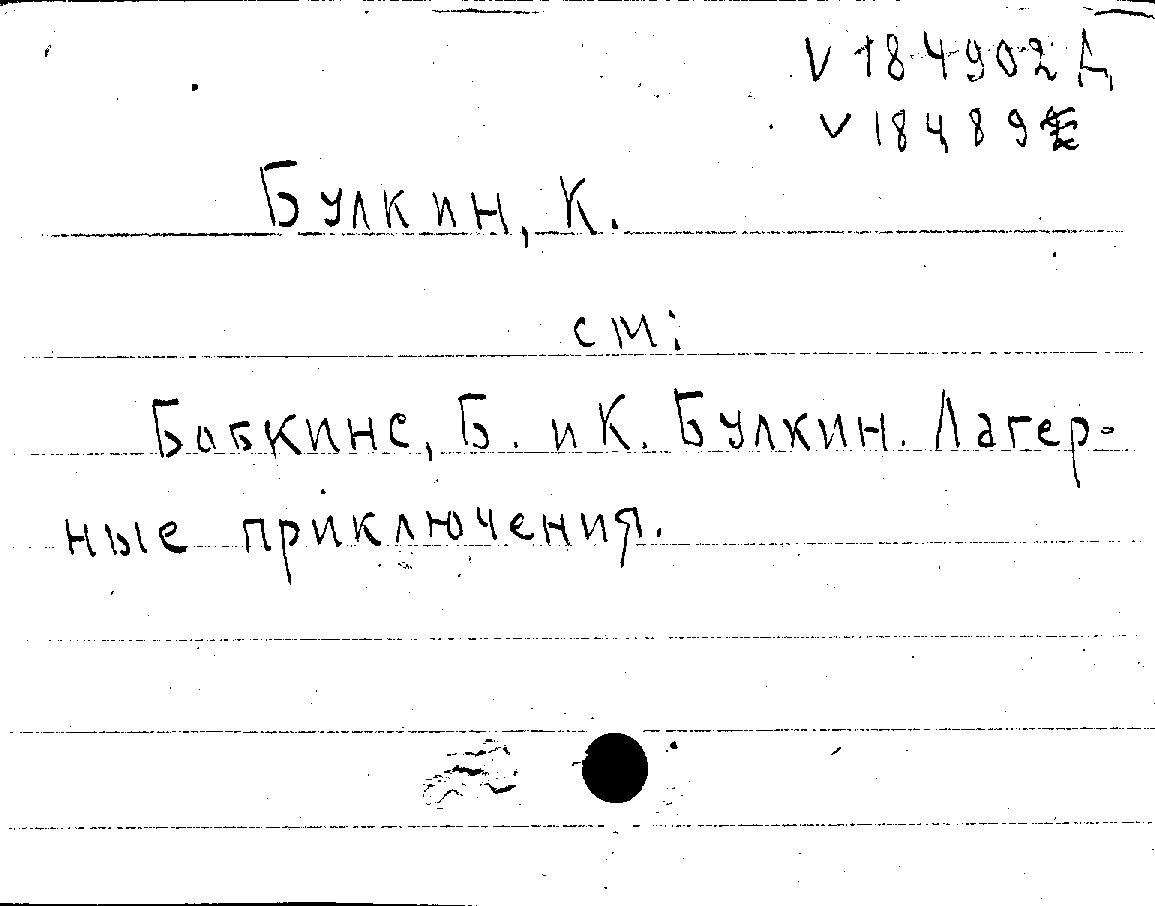 V 184902 Д
V 18489
Булкин, К.
см:
Бобкинс, Б. и К. Булкин. Лагер-
ные приключения.